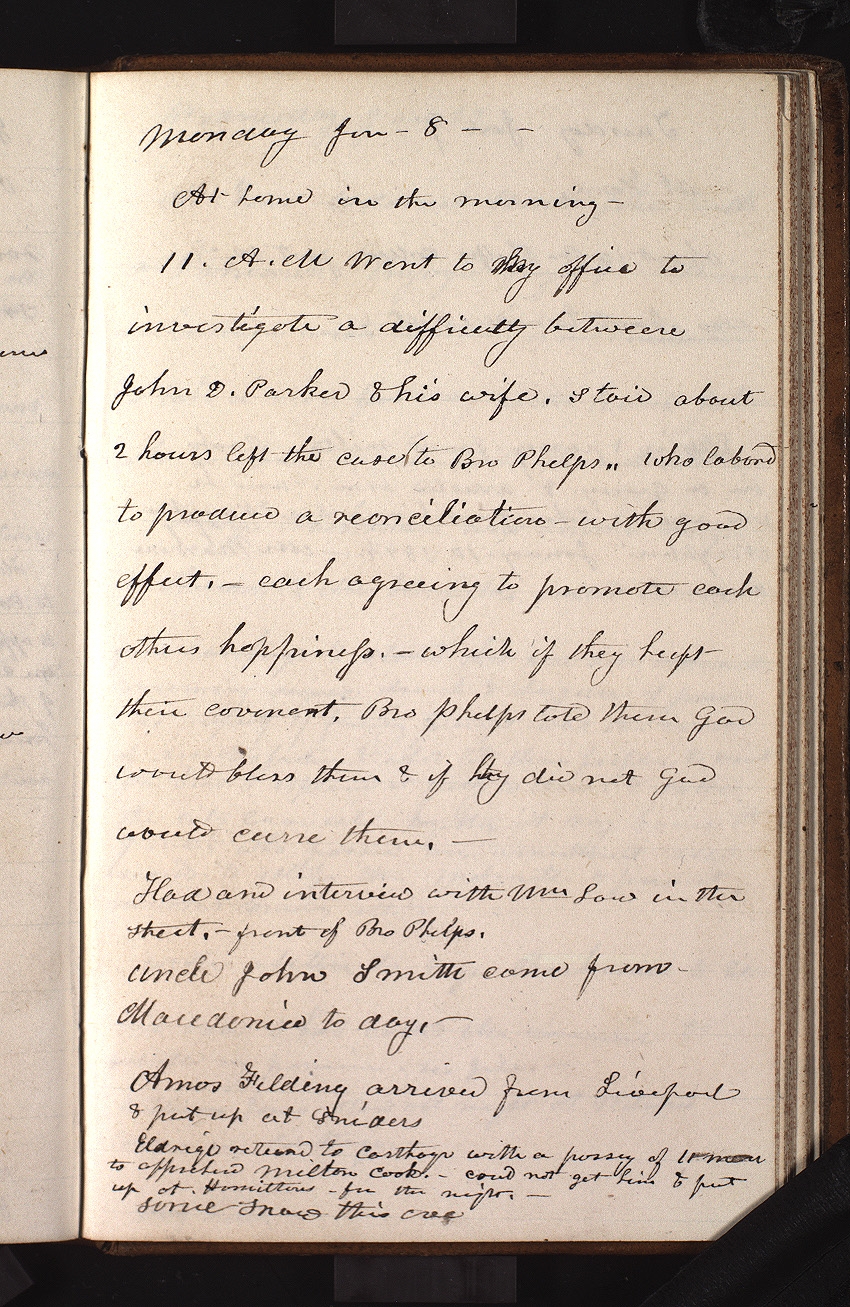 Monday Jan - 8 - -
At home in the morning -
11. A.M Went to my office to
investigate a difficulty between
John D. Parker & his wife. Staid about
2 hours left the case to Bro Phelps,, who labord
to produce a reconciliation - with good
effect. - each agreeing to promote each
others happiness. - which if they kept
their covenant, Bro Phelps told them God
would bless them & if they did not God
would curse them. -
Had and interview with Wm Law in the
street. - front of Bro Phelps.
Uncle John Smith came from -
Macedonia to day. -
Amos Filding arrived from Liverpool
& put up at Sniders
Eldrige returnd to Carthage with a possey of 11 men
to apprehend Milton Cook. - coud not get him & put
up at Hamiltons - for the night. -
some snow this eve